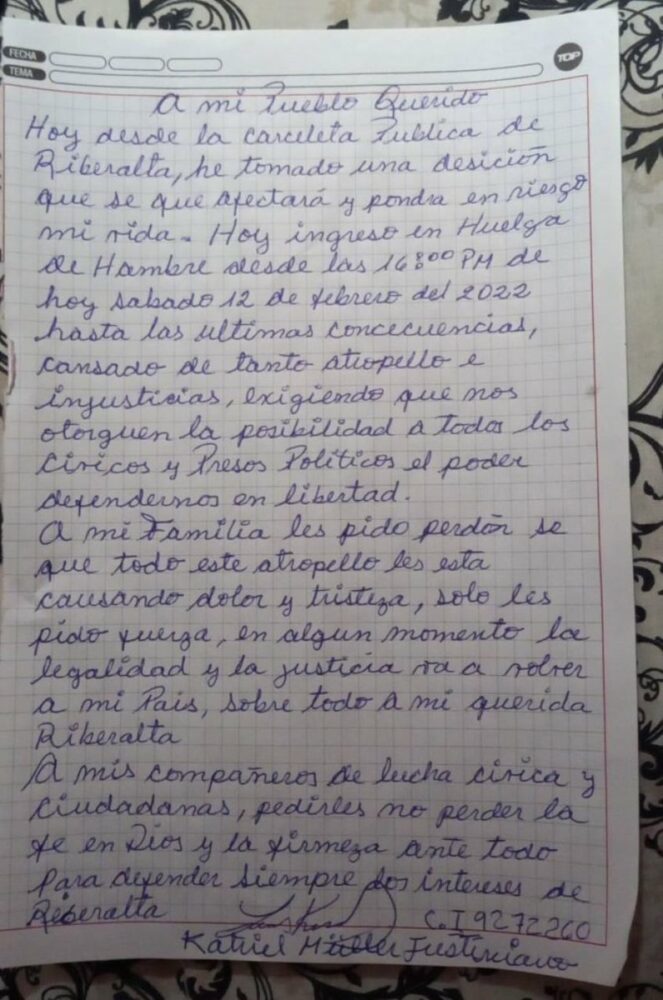 FECHA
TEMA
TOP
A mi Pueblo Querido
Hoy desde la carceleta Publica de
Riberalta, he tomado una desicion
que se que afectará y pondra en riesgo
mi vida. Hoy ingreso en Huelga
de Hambre desde las 16:00 PM de
hoy sabado 12 de febrero del 2022
hasta las ultimas concecuencias,
cansado de tanto atropello e
injusticias, exigiendo que nos
otorguen la posibilidad a todos los
Civicos y Presos Políticos el poder
defendernos en libertad.
A mi Familia les pido perdón se
que todo este atropello les esta
causando dolor y tristeza, solo les
pido fuerza, en algun momento la
legalidad y la justicia va a volver
a mi Pais, sobre todo a mi querida
Riberalta
A mis compañeros de lucha civica y
ciudadanas, pedirles no perder la
fe en Dios y la firmeza ante todo
Para defender siempre los intereses de
Riberalta
C.I 9272260
Katriel Müller Justiniano